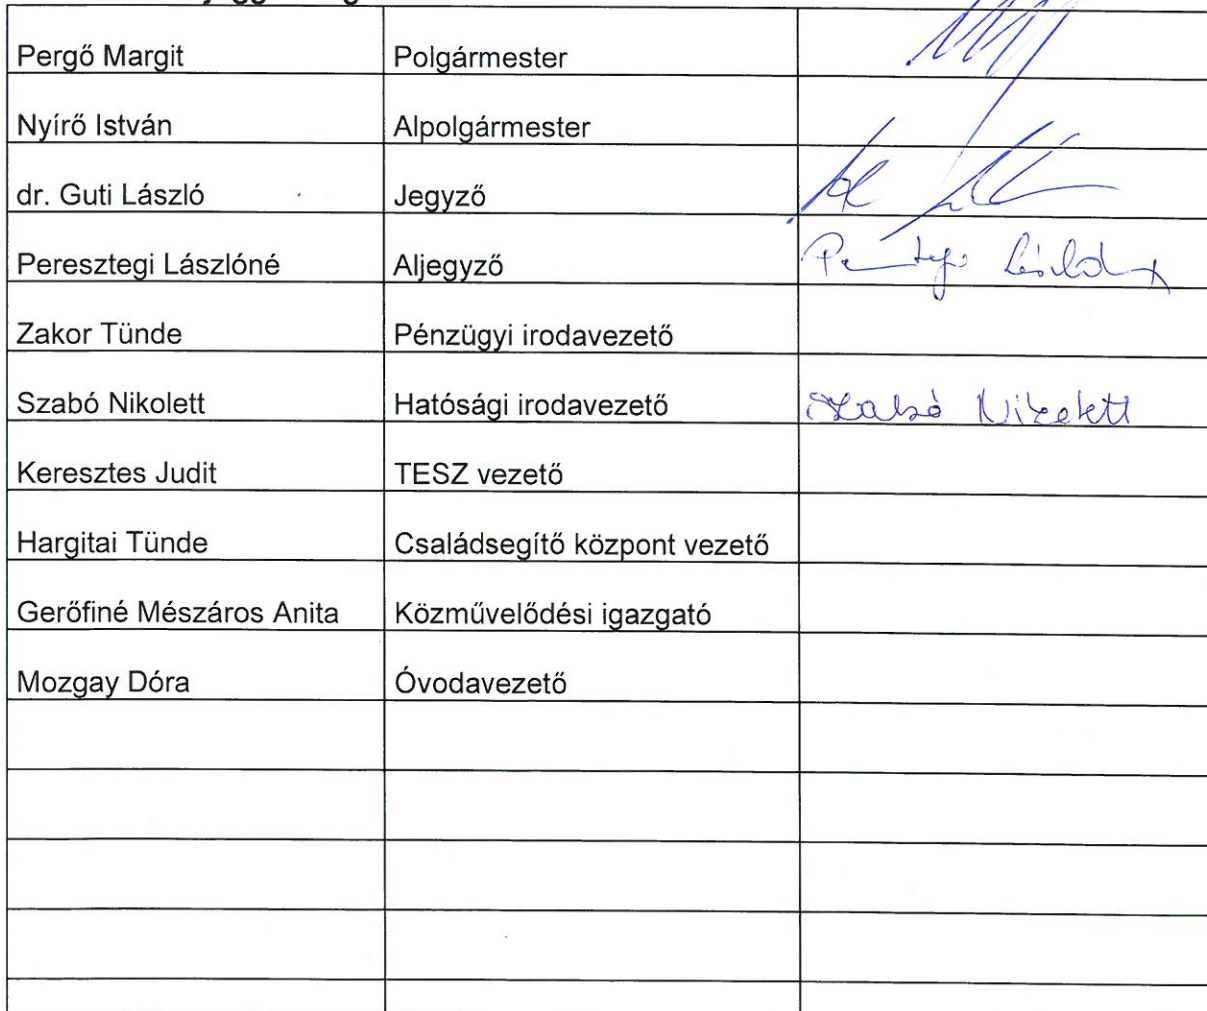 Pergő Margit Polgármester
Nyírő István Alpolgármester
dr. Guti László Jegyző
Peresztegi Lászlóné Aljegyző
Zakor Tünde Pénzügyi irodavezető
Szabó Nikolett Hatósági irodavezető Szabó Nikolett
Keresztes Judit TESZ vezető
Hargitai Tünde Családsegítő központ vezető
Gerőfiné Mészáros Anita Közművelődési igazgató
Mozgay Dóra Óvodavezető